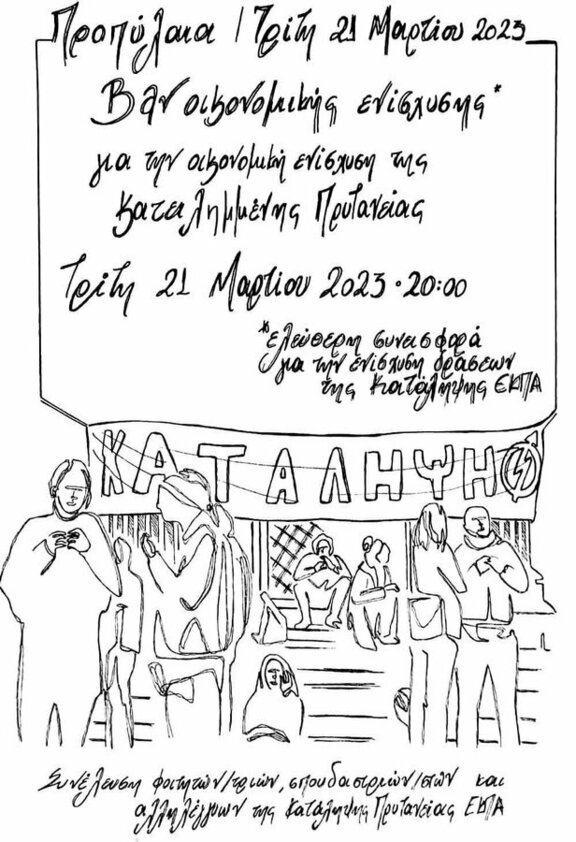 Προπύλαια / Τρίτη 21 Μαρτίου 2023
Bar οικονομικής ενίσχυσης*
για την οικονομική ενίσχυση της
κατειλημμένης Πρυτανείας
Τρίτη 21 Μαρτίου 2023 · 20:00
*ελεύθερη συνεισφορά
για την ενίσχυση δράσεων
της Κατάληψης ΕΚΠΑ
ΚΑΤΑΛΗΨΗ
Συνέλευση φοιτητών/τριών, σπουδαστριών/στών και
αλληλέγγυων της Κατάληψης Πρυτανείας ΕΚΠΑ